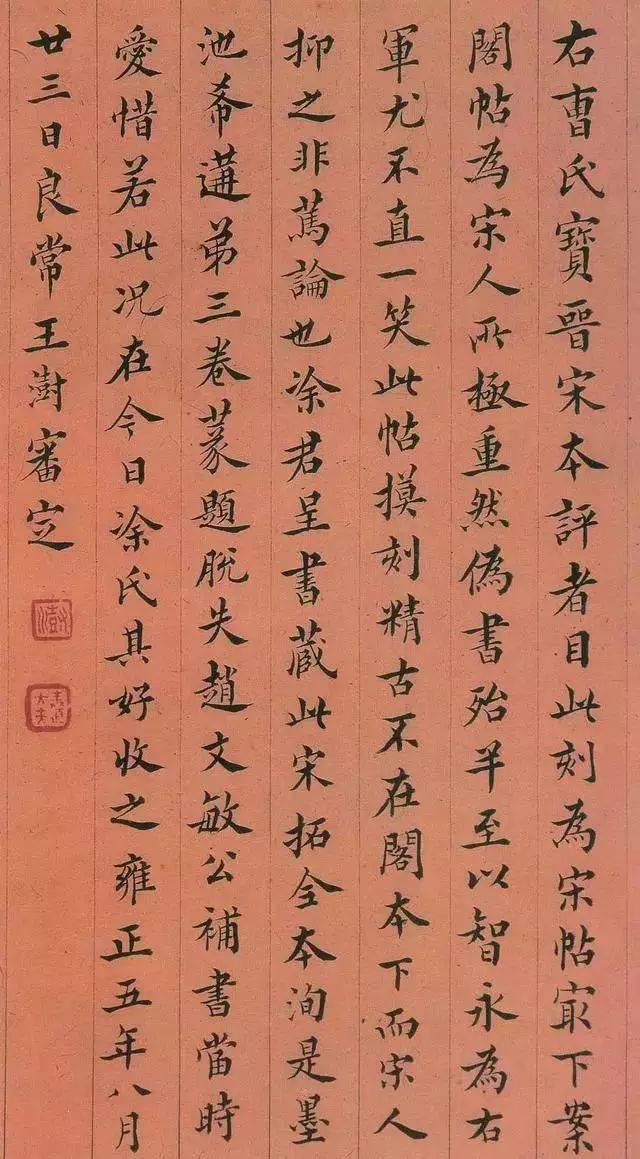 右曹氏寶晉宋本評者目此刻為宋帖㝡下案
閣帖為宋人所極重然偽書殆半至以智永為右
軍尤不直一笑此帖摸刻精古不在閣本下而宋人
抑之非篤論也涂君呈書藏此宋拓全本洵是墨
池希遘弟三卷篆題脫失趙文敏公補書當時
愛惜若此况在今日涂氏其好收之雍正五年八月
廿三日良常王澍審定
澍